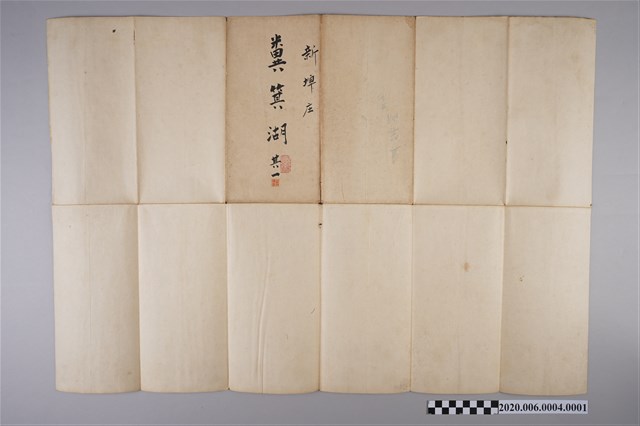 新埤庄
糞箕湖
其一
2020.006.0004.0001